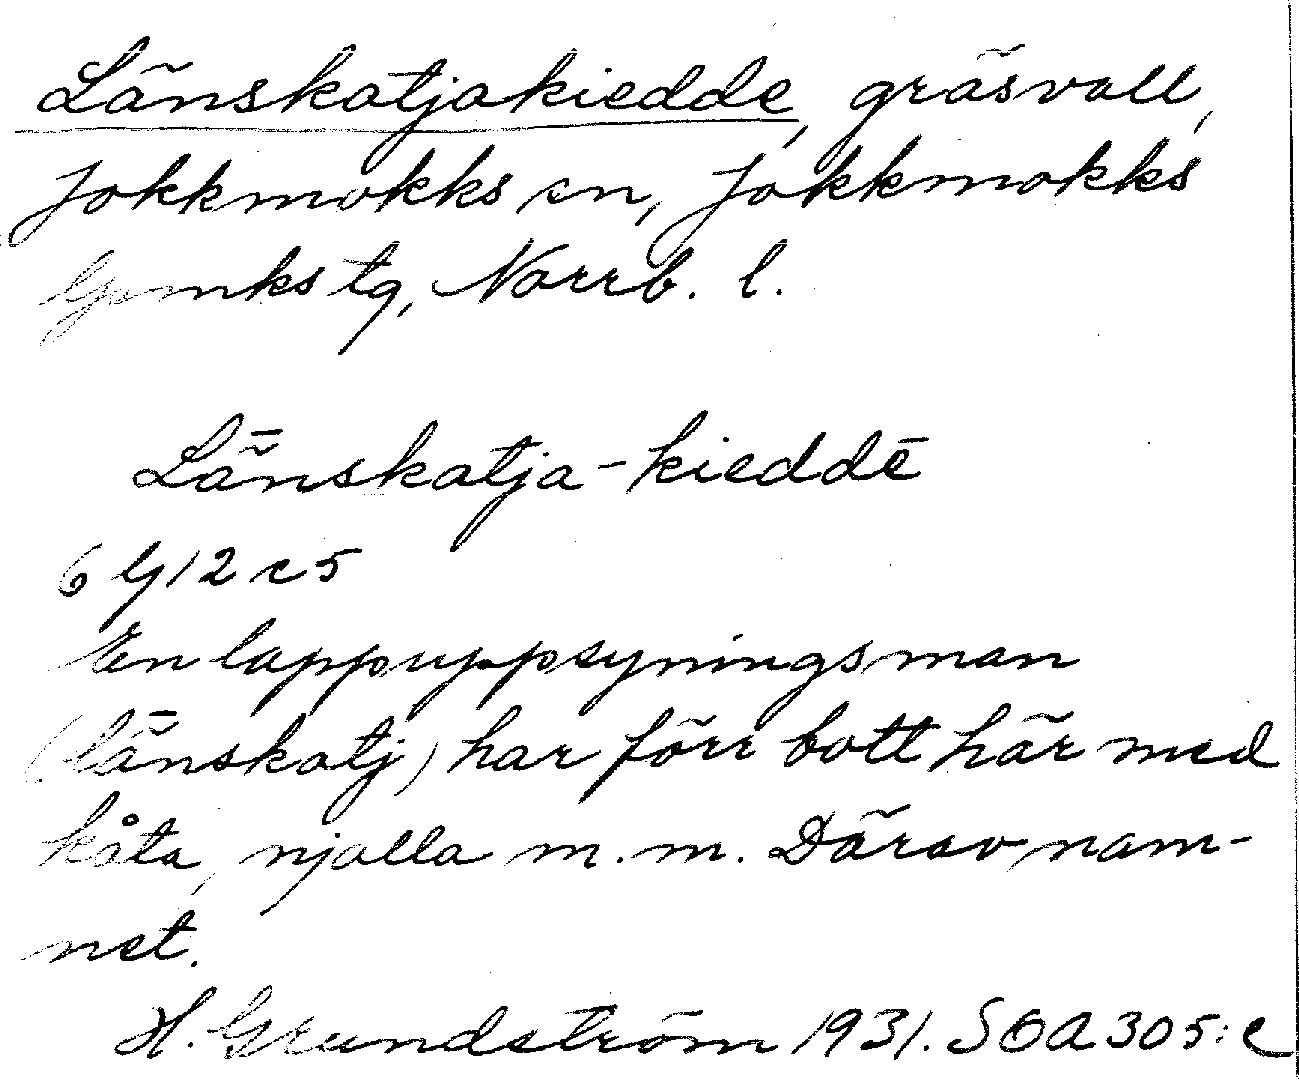 Länskatjakiedde, gräsvall,
Jokkmokks sn, Jokkmokks
lpmks tg, Norrb. l.
Lǟnskatja-kieddē
6 G 12 c 5
En lappuppsyningsman
(lǟnskatj) har förr bott här med
kåta, njalla m.m. Därav nam-
net.
H. Grundström 1931. SOA 305:c